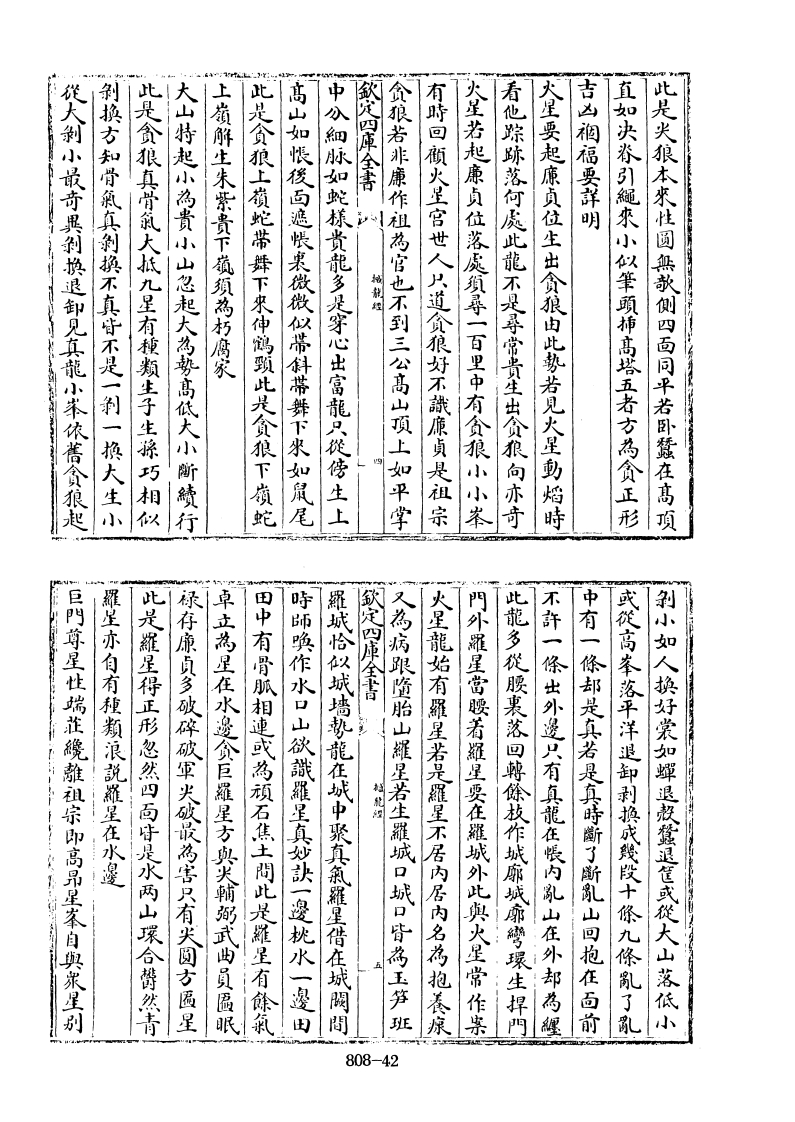 此是尖狼本來性圓無欹側四面同平若卧蠶在髙頂
直如決脊引繩來小似筆頭揷髙塔五者方為貪正形
吉凶禍福要詳明
火星要起廉貞位生出貪狼由此勢若見火星動熖時
看他踪跡落何處此龍不是尋常貴生出貪狼向亦奇
火星若起廉貞位落處須尋一百里中有貪狼小小峯
有時回顧火星宮世人只道貪狼好不識廉貞是祖宗
貪狼若非廉作祖為官也不到三公髙山頂上如平掌
欽定四庫全書
撼龍經
四
中分細脉如蛇樣貴龍多是穿心出富龍只從傍生上
髙山如帳後面遮帳裏微微似帶斜帶舞下來如鼠尾
此是貪狼上嶺蛇帶舞下來伸鶴頸此是貪狼下嶺蛇
上嶺解生朱紫貴下嶺須為朽腐家
大山特起小為貴小山忽起大為勢髙低大小斷續行
此是貪狼真骨氣大抵九星有種類生子生孫巧相似
剝換方知骨氣真剝換不真皆不是一剝一換大生小
從大剝小最竒異剝換退卸見真龍小峯依舊貪狼起
剝小如人換好裳如蟬退殼蠶退筐或從大山落低小
或從高峯落平洋退卸剝換成幾段十條九條亂了亂
中有一條却是真若是真時斷了斷亂山回抱在面前
不許一條出外邊只有真龍在帳内亂山在外却為纒
此龍多從腰裏落回轉餘枝作城廓城廓彎環生捍門
門外羅星當腰着羅星要在羅城外此與火星常作案
火星龍始有羅星若是羅星不居内居内名為抱養瘝
又為病眼墮胎山羅星若生羅城口城口皆為玉笋班
欽定四庫全書
撼龍經
五
羅城恰似城墻勢龍在城中聚真氣羅星借在城闕間
時師喚作水口山欲識羅星真妙訣一邊枕水一邊田
田中有骨脈相連或為頑石焦土間此是羅星有餘氣
卓立為星在水邊貪巨羅星方與尖輔弼武曲員匾眠
禄存廉貞多破碎破軍尖破最為害只有尖圓方匾星
此是羅星得正形忽然四面皆是水两山環合鬱然青
羅星亦自有種類浪説羅星在水邊
巨門尊星性端莊纔離祖宗即高昻星峯自與衆星别
808-42